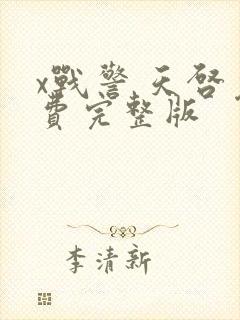 x戰警 天啓
費完整版
李清新